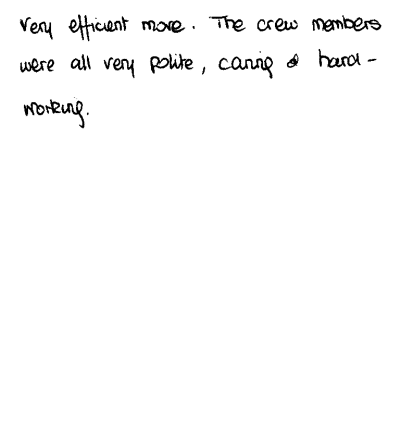 Very efficient move. The crew members
were all very polite, caring & hard-
working.